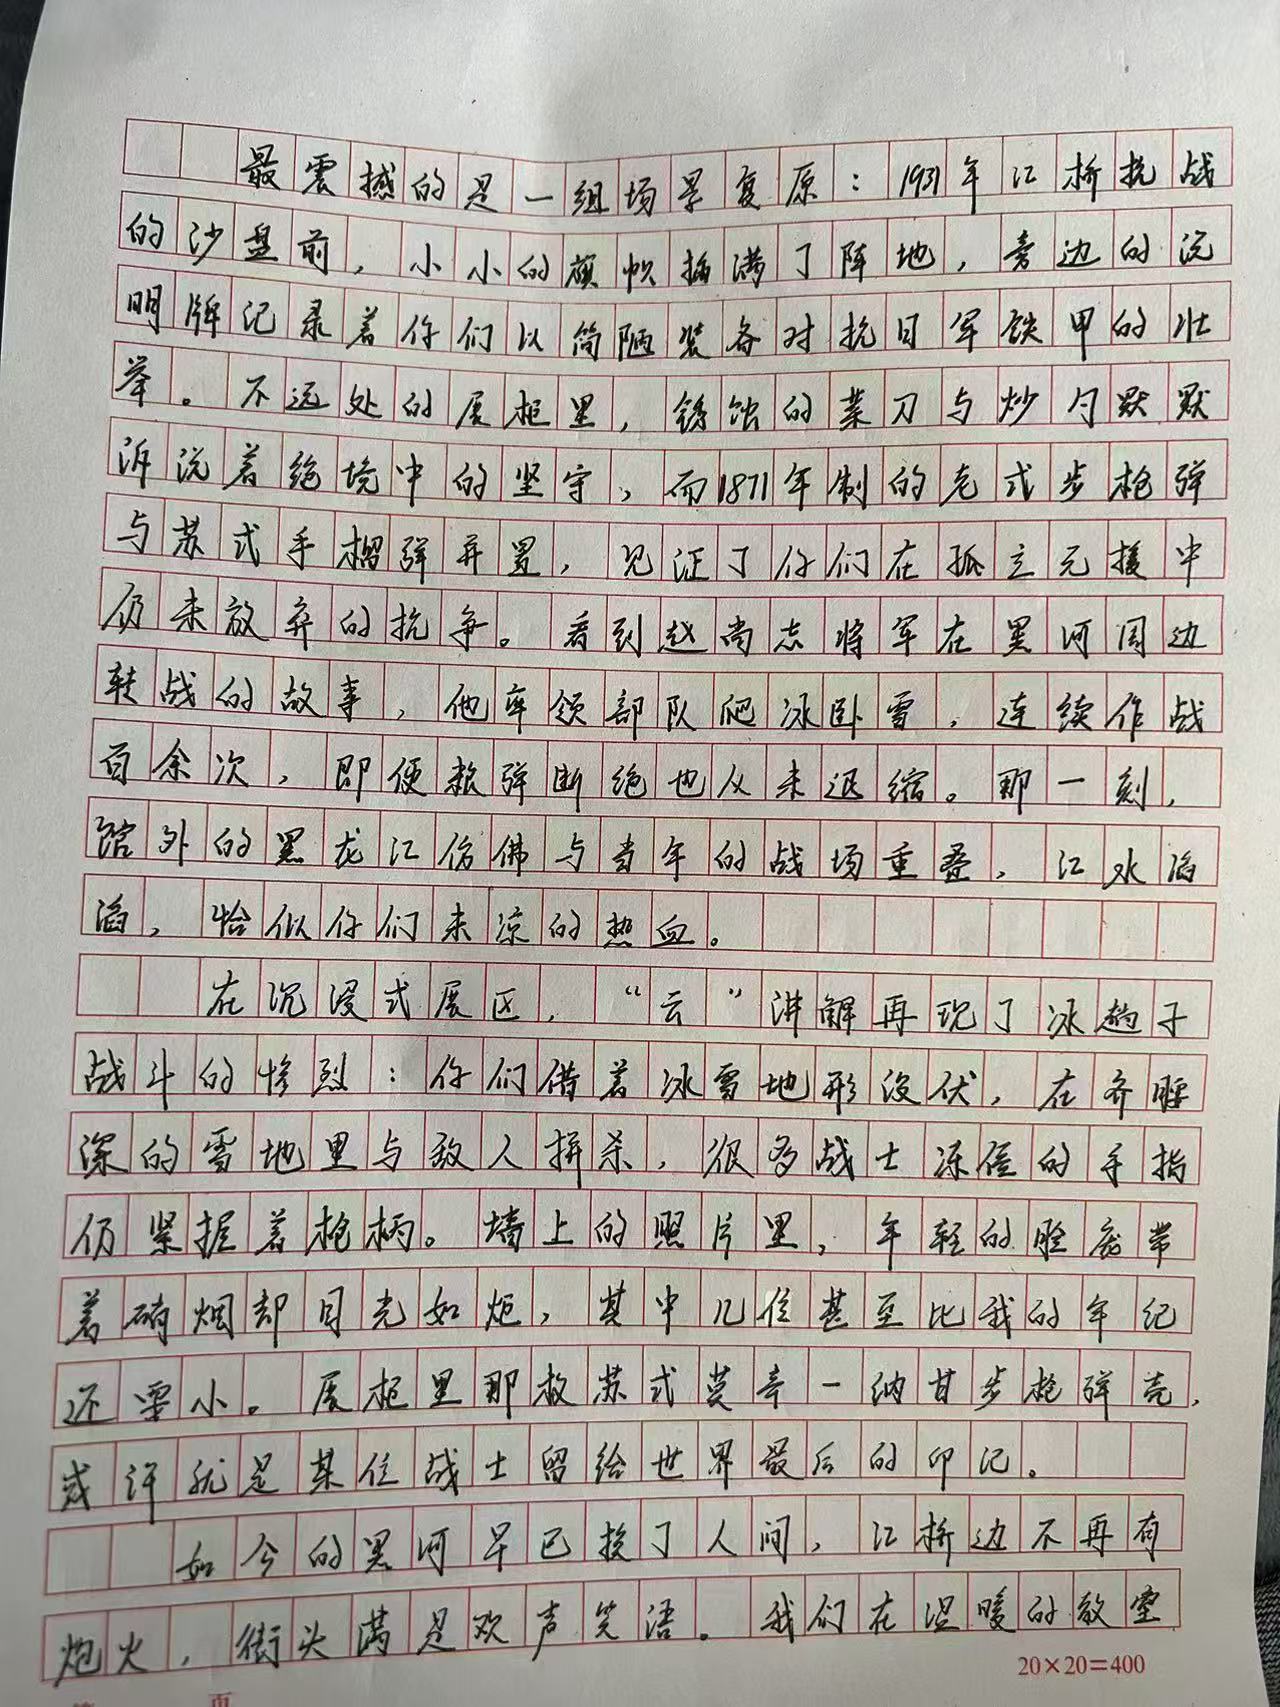 最震撼的是一组场景复原：1931年江桥抗战
的沙盘前，小小的旗帜插满了阵地，旁边的说
明牌记录着你们以简陋装备对抗日军铁甲的壮
举。不远处的展柜里，锈蚀的菜刀与炒勺默默
诉说着绝境中的坚守，而1871年制的老式步枪弹
与苏式手榴弹并置，见证了你们在孤立无援中
仍未放弃的抗争。看到赵尚志将军在黑河周边
转战的故事，他率领部队爬冰卧雪，连续作战
百余次，即便粮弹断绝也从未退缩。那一刻，
馆外的黑龙江仿佛与当年的战场重叠，江水滔
滔，恰似你们未凉的热血。
在沉浸式展区，“云”讲解再现了冰趟子
战斗的惨烈：你们借着冰雪地形没伏，在齐腰
深的雪地里与敌人拼杀，很多战士冻僵的手指
仍紧握着枪柄。墙上的照片里，年轻的脸庞带
着硝烟却目光如炬，其中几位甚至比我的年纪
还要小。展柜里那枚苏式莫辛－纳甘步枪弹壳，
或许就是某位战士留给世界最后的印记。
如今的黑河早已换了人间，江桥边不再有
炮火，街头满是欢声笑语。我们在温暖的教室
20×20=400
页